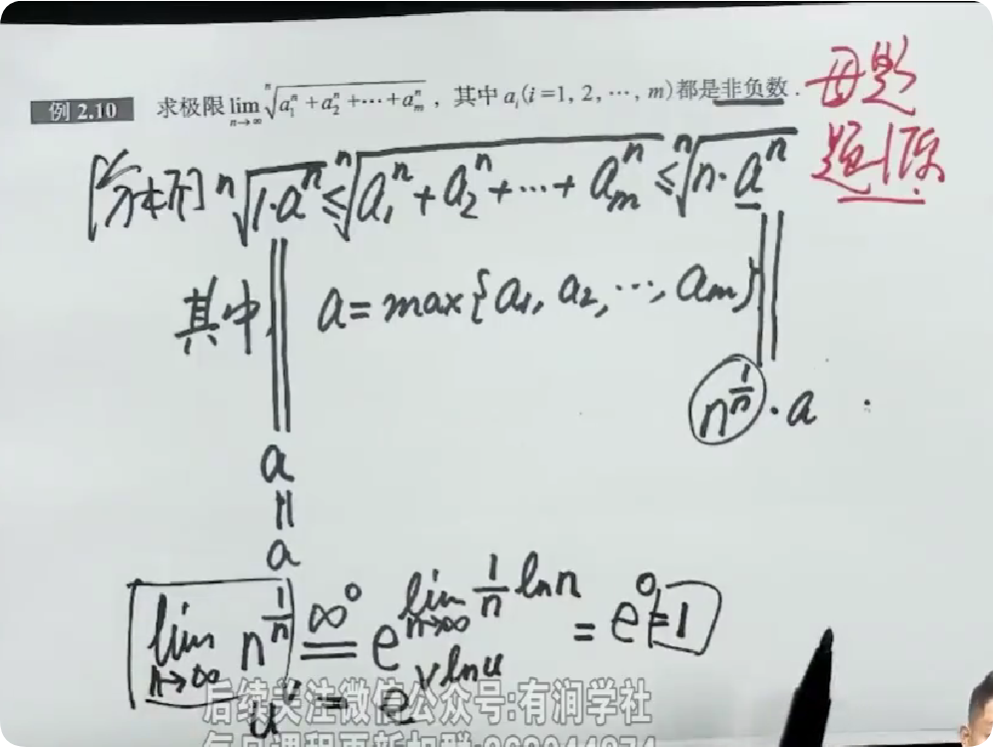 例 2.10 求极限 lim n→∞ ⁿ√(a₁ⁿ+a₂ⁿ+⋯+aₘⁿ) , 其中 aᵢ(i=1, 2, ⋯, m)都是非负数.
母题
[分析] ⁿ√(1·aⁿ) ≤ ⁿ√(a₁ⁿ+a₂ⁿ+⋯+aₘⁿ) ≤ ⁿ√(n·aⁿ)
其中 a=max{a₁, a₂, ⋯, aₘ}
n^(1/n)·a
a
=
a
lim n→∞ n^(1/n) ∞⁰ = e^(lim n→∞ 1/n ln n) = e⁰=1
uᵛ = e^(v ln u)
后续关注微信公众号:有润学社